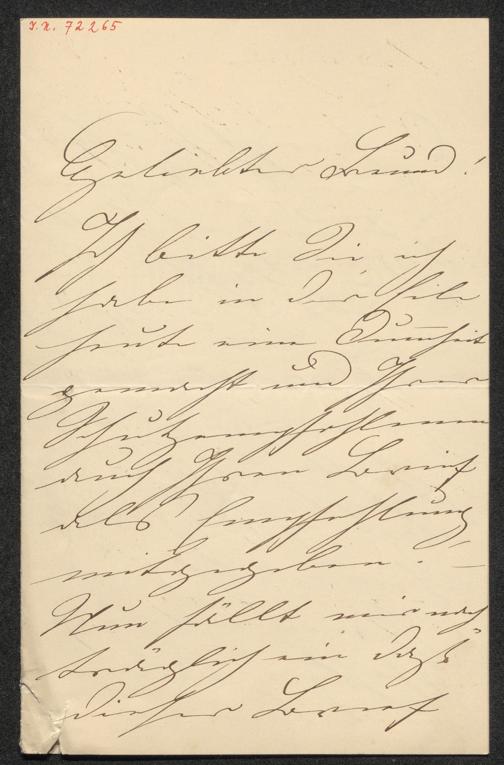 I.N. 72265
Geliebter Freund!
Ich bitte Sie ich
habe in der Eile
heute eine Dummheit
gemacht und Ihrer
Schutzempfohlenen
auch Ihren Brief
als Empfehlung
mitgegeben. —
Nun fällt mir nach
träglich ein daß
dieser Brief